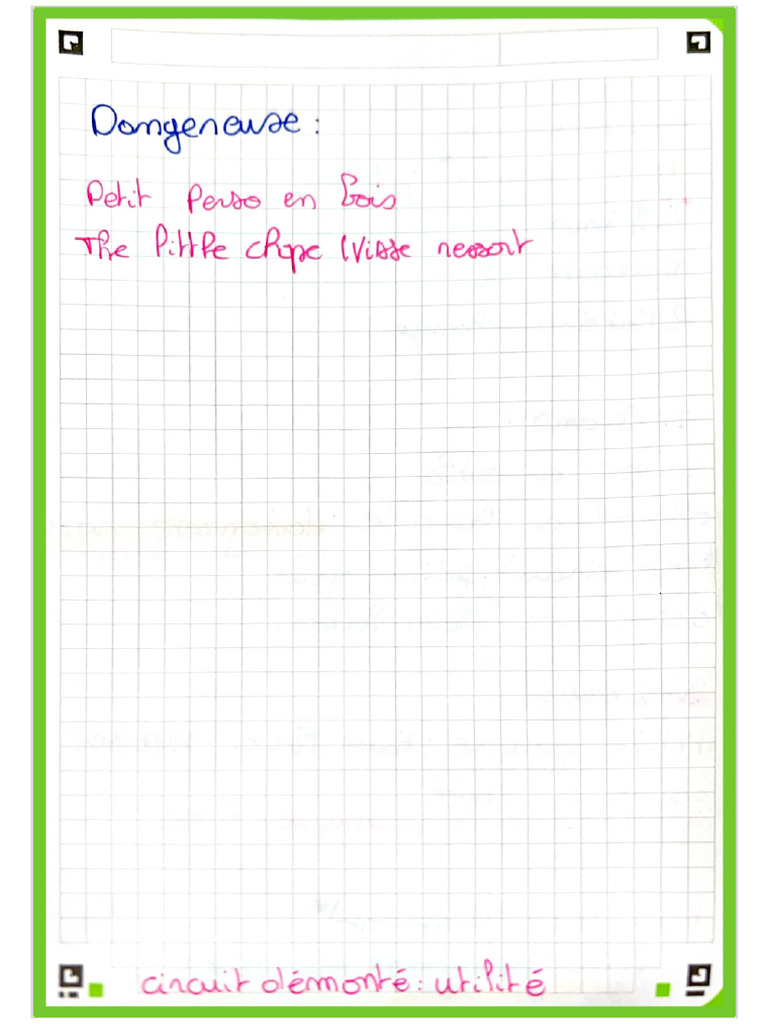 Dangereuse :
Petit Perso en bois
The little chope (Visse ressort
circuit démonté : utilité